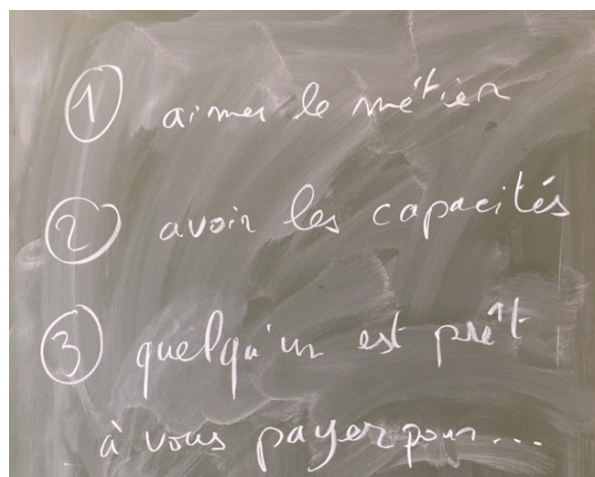 ① aimer le métier
② avoir les capacités
③ quelqu'un est prêt
à vous payer pour...